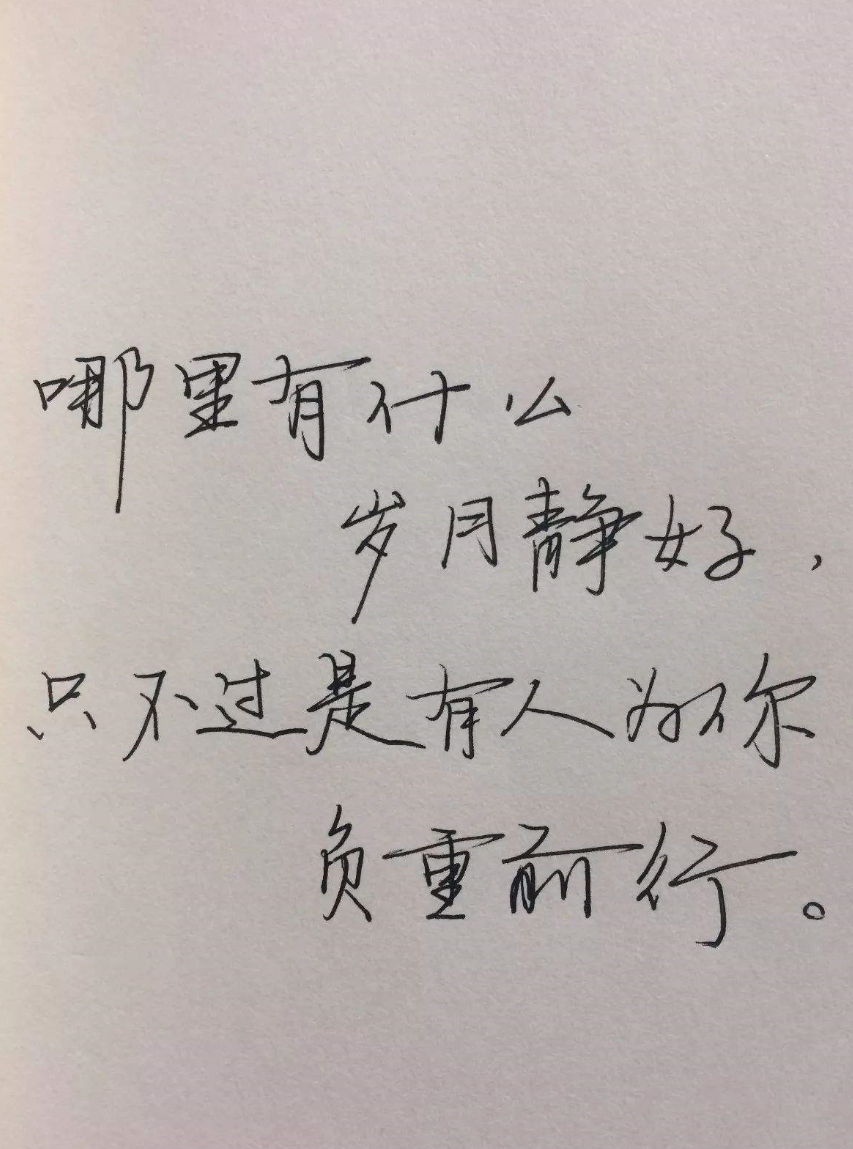 哪里有什么
岁月静好，
只不过是有人为你
负重前行。